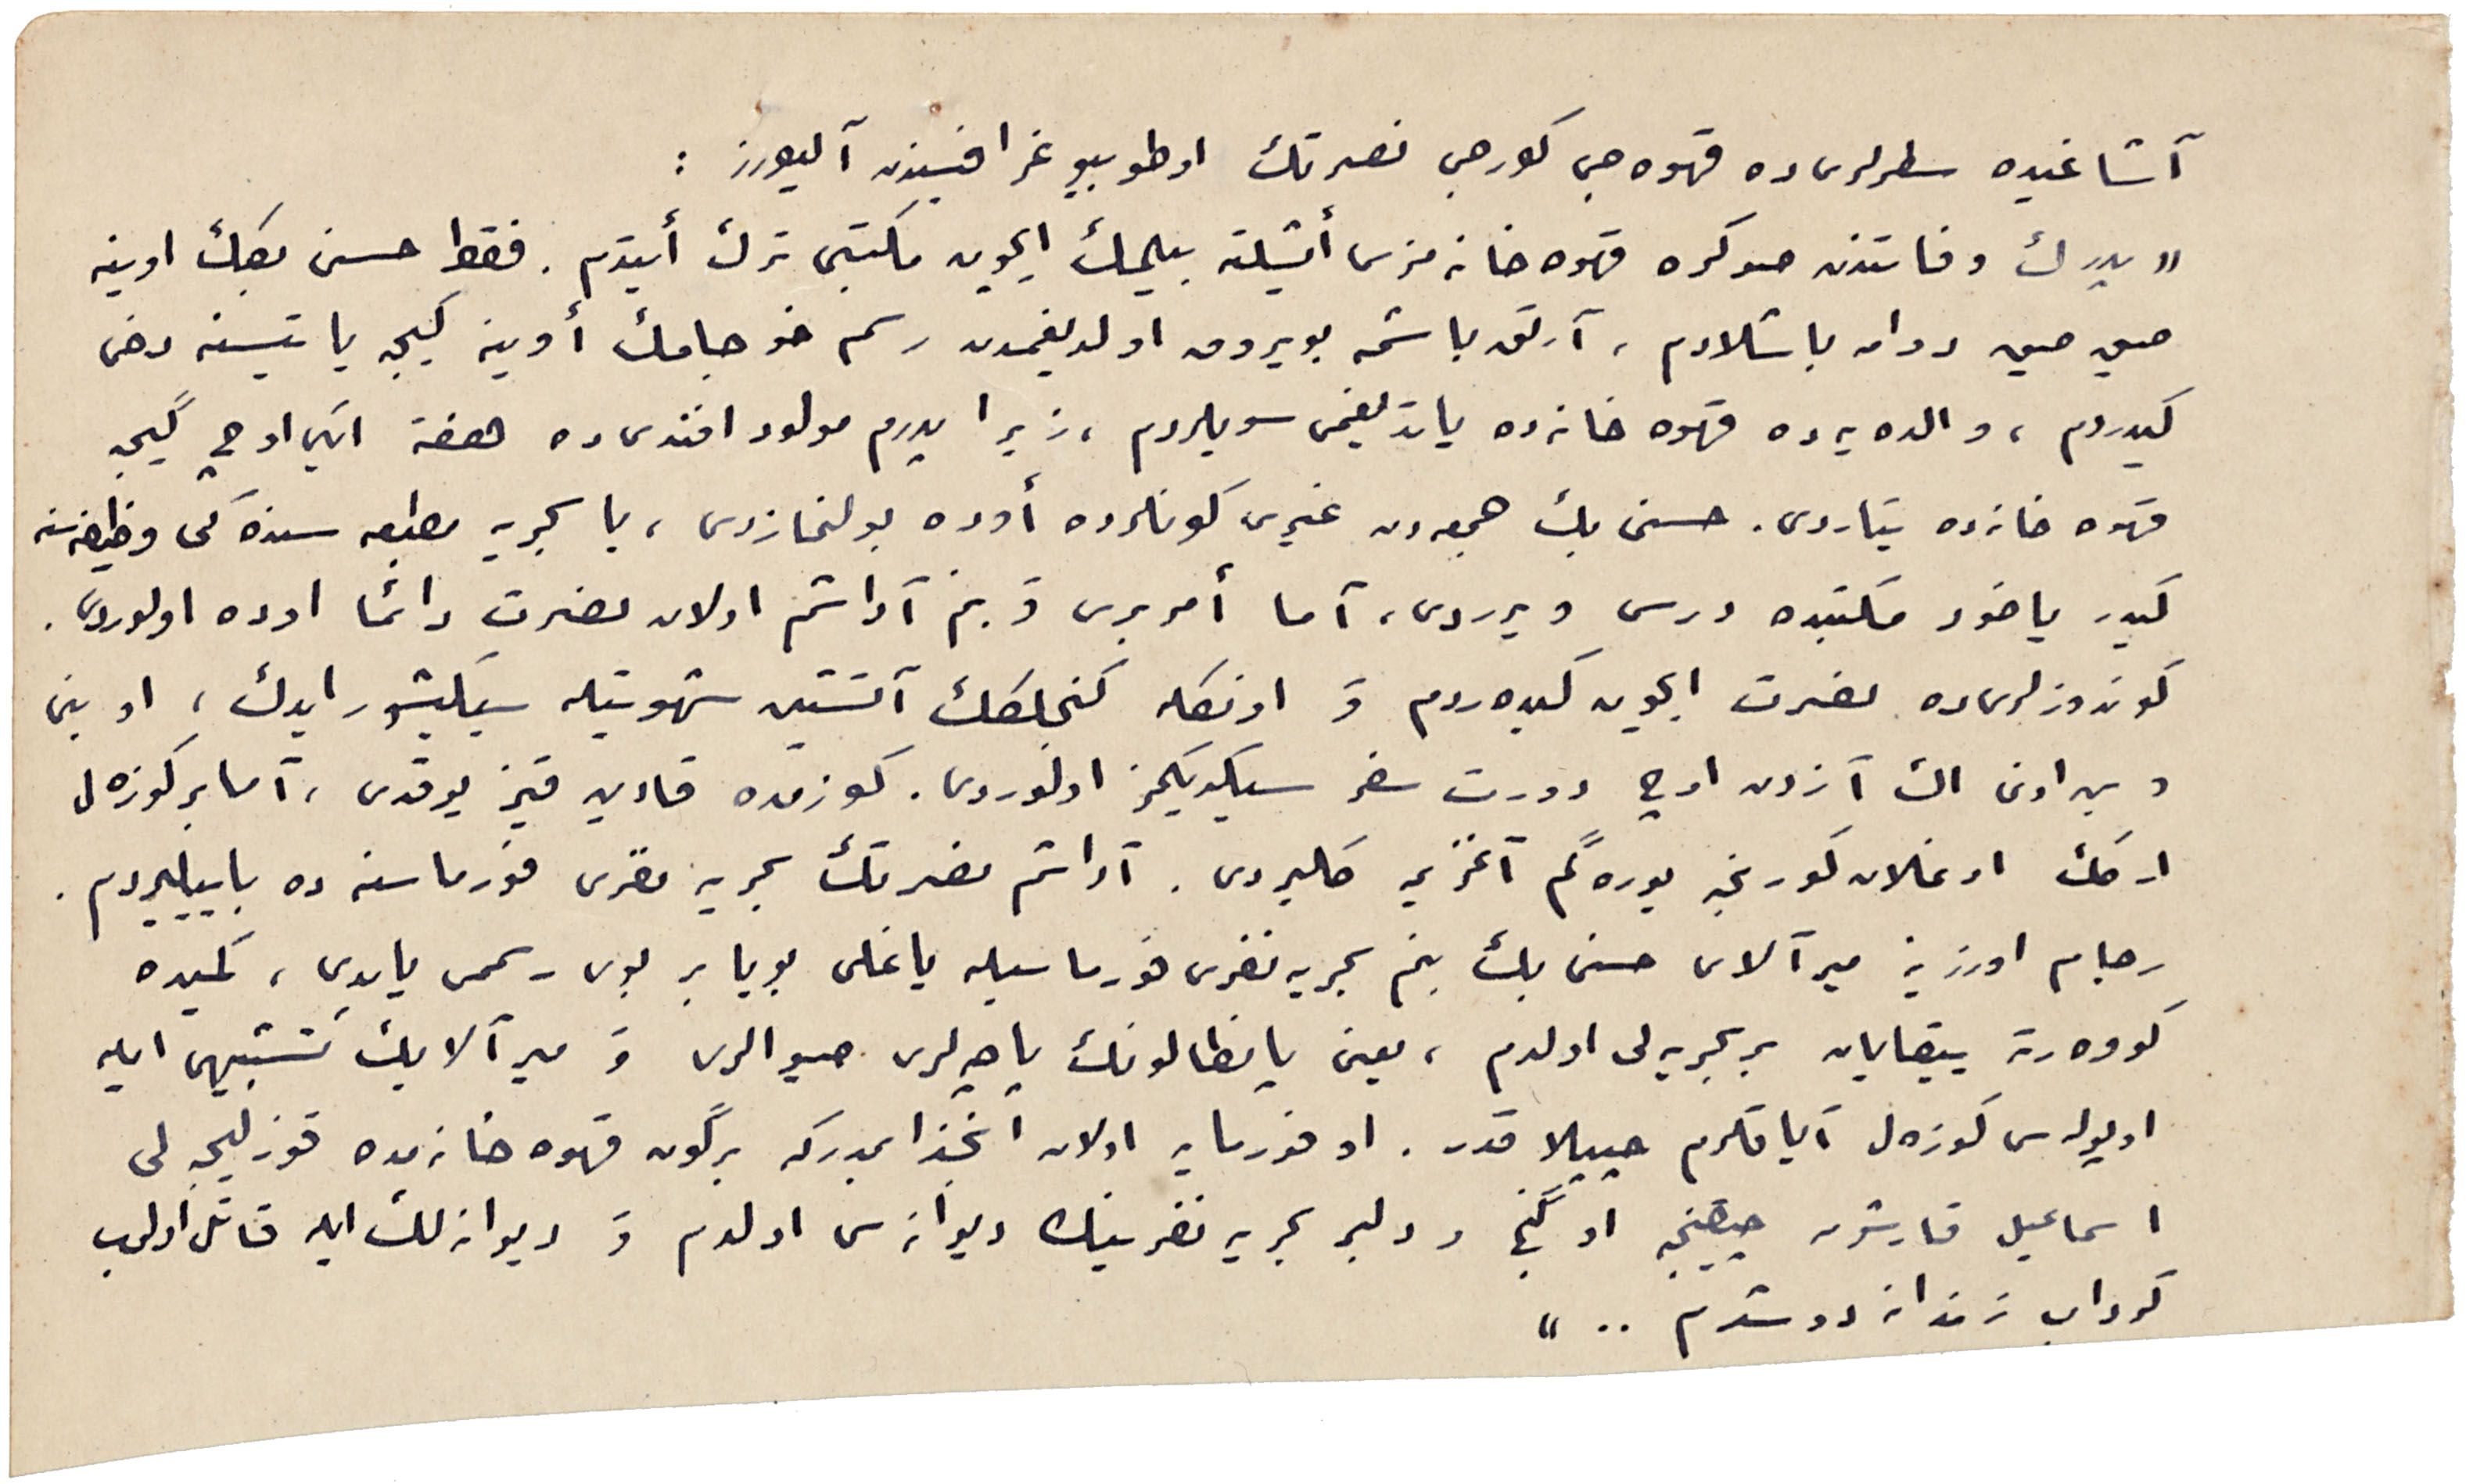 آشاغیده سطرلری ده قهوه جی كورجی نصرتك اوطوبیوغرافیسندن آلیورز :
« پدرك وفاتندن صوكره قهوه خانه مزی أیشلته بیلمك ایچون مكتبی ترك أیتدم . فقط حسنی بكك اوینه
صیق صیق دوامه باشلادم ، آرتق باشمه بویروق اولدیغمدن رسم خوجامك أوینه كیجه یاتیسنه دخی
كیدردم ، والده یه ده قهوه خانه ده یاتدیغمی سویلردم ، زیرا پدرم مولود افندی ده هفته ایكی اوچ گیجه
قهوه خانه ده یتاردی . حسنی بك جمعه دن غیری كونلرده أوده بولنمازدی ، یا بحریه مطبعه سنده كی وظیفه سنه
كیدر یاخود مكتبده درس ویرردی ، آما أمر بری و بنم آداشم اولان نصرت دائما اوده اولوردی .
كوندوزلری ده نصرت ایچون كیده ردم و اونكله كنجلكك آتشین شهوتیله سیكیشور ایدك ، او بنی
و بن اونی الك آزدن اوچ دورت سفر سیكدیكمز اولوردی . كوزمده قادین قیز یوقدی ، آما بر كوزه ل
اركك اوغلان كورنجه یوره گم آغزیمه كلیردی . آداشم نصرتك بحریه نفری فورماسنه ده بایییلیردم .
رجام اوزرینه میرآلای حسنی بك بنم بحریه نفری فورماسیله یاغلی بویا بر بوی رسممی یاپدی ، كمیده
كووه رته ییقایان بر بحریه لی اولدم ، یعنی پانطالونك پاچه لری صیوالری و میرآلای بك تشبیهی ایله
او پوله سی كوزه ل آیاقلرم چیپلاق در . او فورمایه اولان انجذابمدركه برگون قهوه خانه مده قوزلیجه لی
اسماعیل قارشومه چیقنجه او گنج و دلبر بحریه نفرینك دیوانه سی اولدم و دیوانه لك ایله قاتل اولوب
كرداب زندانه دوشدم .. »